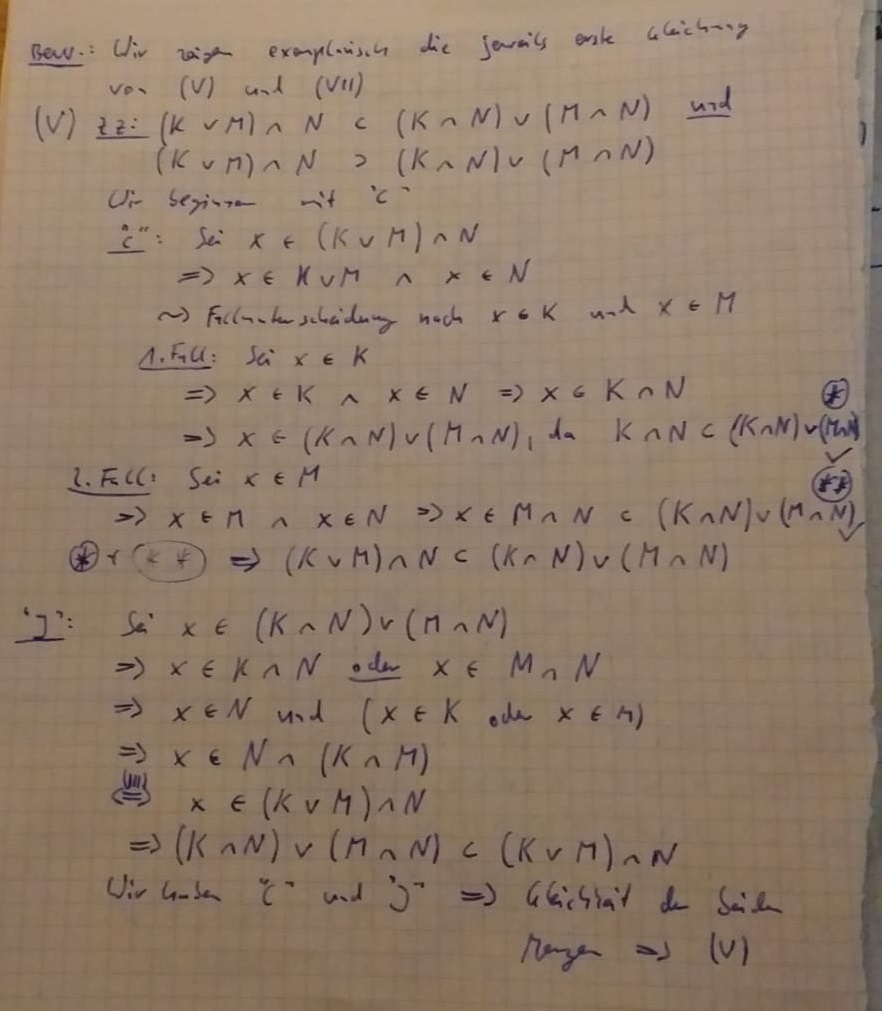 Bew.: Wir zeigen exemplarisch die jeweils erste Gleichung
von (V) und (VII)
(V) zz: (K ∪ M) ∩ N ⊂ (K ∩ N) ∪ (M ∩ N) und
(K ∪ M) ∩ N ⊃ (K ∩ N) ∪ (M ∩ N)
Wir beginnen mit "⊂"
"⊂": Sei x ∈ (K ∪ M) ∩ N
=> x ∈ K ∪ M ∧ x ∈ N
~> Fallunterscheidung nach x ∈ K und x ∈ M
1. Fall: Sei x ∈ K
=> x ∈ K ∧ x ∈ N => x ∈ K ∩ N (*)
=> x ∈ (K ∩ N) ∪ (M ∩ N), da K ∩ N ⊂ (K ∩ N) ∪ (M ∩ N) ✓
2. Fall: Sei x ∈ M (**)
=> x ∈ M ∧ x ∈ N => x ∈ M ∩ N ⊂ (K ∩ N) ∪ (M ∩ N) ✓
(*) + (**) => (K ∪ M) ∩ N ⊂ (K ∩ N) ∪ (M ∩ N)
"⊃": Sei x ∈ (K ∩ N) ∪ (M ∩ N)
=> x ∈ K ∩ N oder x ∈ M ∩ N
=> x ∈ N und (x ∈ K oder x ∈ M)
=> x ∈ N ∩ (K ∩ M)
(III) <=> x ∈ (K ∪ M) ∩ N
=> (K ∩ N) ∪ (M ∩ N) ⊂ (K ∪ M) ∩ N
Wir haben "⊂" und "⊃" => Gleichheit der beiden
Mengen => (V)